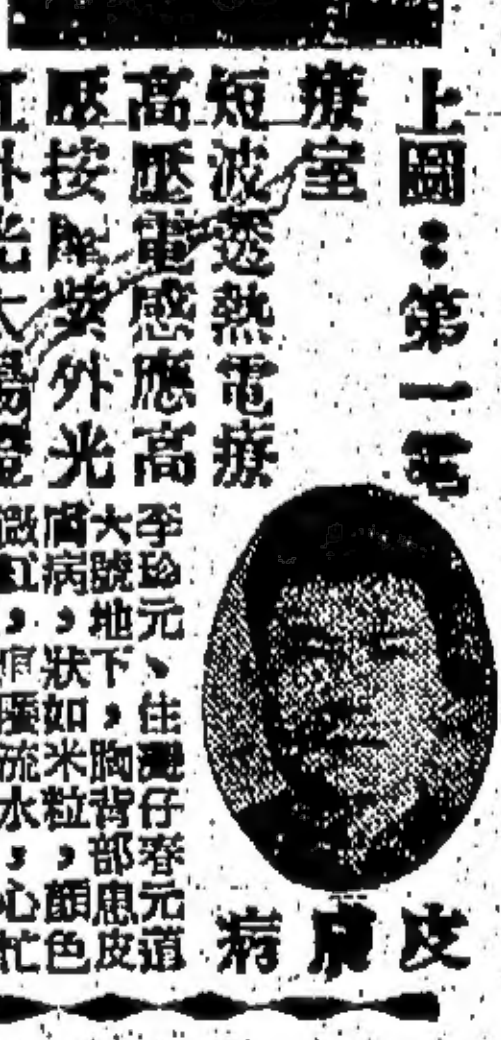 上圖：第一電
療室
短波透熱電療
高壓電感應高
壓按摩紫外光
紅外光太陽燈
皮膚病
李珍元、住灣仔春元道
大號地下，胸背部患皮
膚病，狀如米粒，顏色
微紅，痕癢流水，心忙